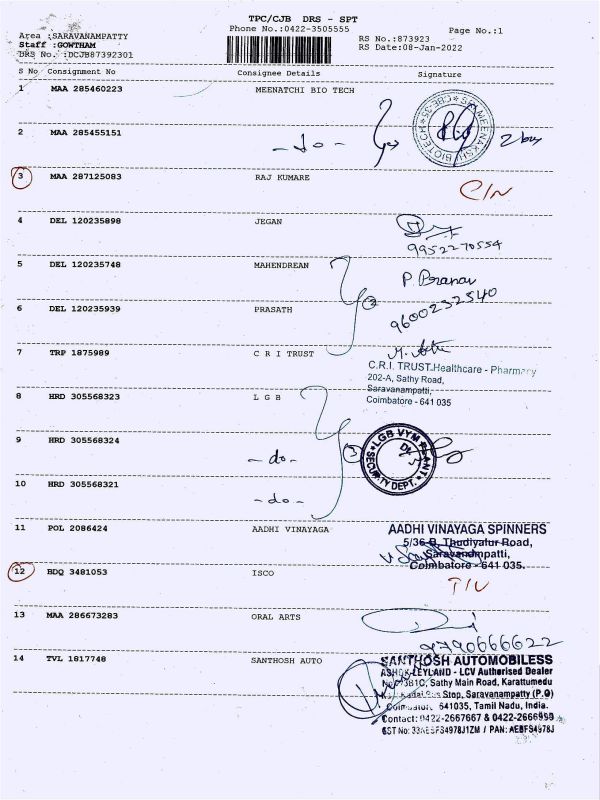 TPC/CJB DRS - SPT
Phone No.:0422-3505555
Page No.:1
Area :SARAVANAMPATTY
Staff :GOWTHAM
DRS No. :DCJB87392301
RS No.:873923
RS Date:08-Jan-2022
S No Consignment No Consignee Details Signature
1 MAA 285460223 MEENATCHI BIO TECH
2 MAA 285455151 - do -
3 MAA 287125083 RAJ KUMARE
4 DEL 120235898 JEGAN
9952270554
5 DEL 120235748 MAHENDREAN
P. Pranav
9600232540
6 DEL 120235939 PRASATH
7 TRP 1875989 C R I TRUST
C.R.I. TRUST.Healthcare - Pharmacy
202-A, Sathy Road,
Saravanampatti,
Coimbatore - 641 035
8 HRD 305563323 L G B
9 HRD 305568324 - do -
LGB VYM PLANT
SECURITY DEPT.
10 HRD 305568321 - do -
11 POL 2086424 AADHI VINAYAGA
AADHI VINAYAGA SPINNERS
5/36-B, Thudiyalur Road,
Saravanampatti,
Coimbatore - 641 035.
12 BDQ 3481053 ISCO
13 MAA 286673283 ORAL ARTS
9790666622
14 TVL 1817748 SANTHOSH AUTO
SANTHOSH AUTOMOBILESS
ASHOK LEYLAND - LCV Authorised Dealer
Sathy Main Road, Karattumedu
Stop, Saravanampatty (P.O)
Coimbatore 641035, Tamil Nadu, India.
Contact: 0422-2667667 & 0422-2666999
GST No: 33AEBFS4978J1ZM / PAN: AEBFS4978J